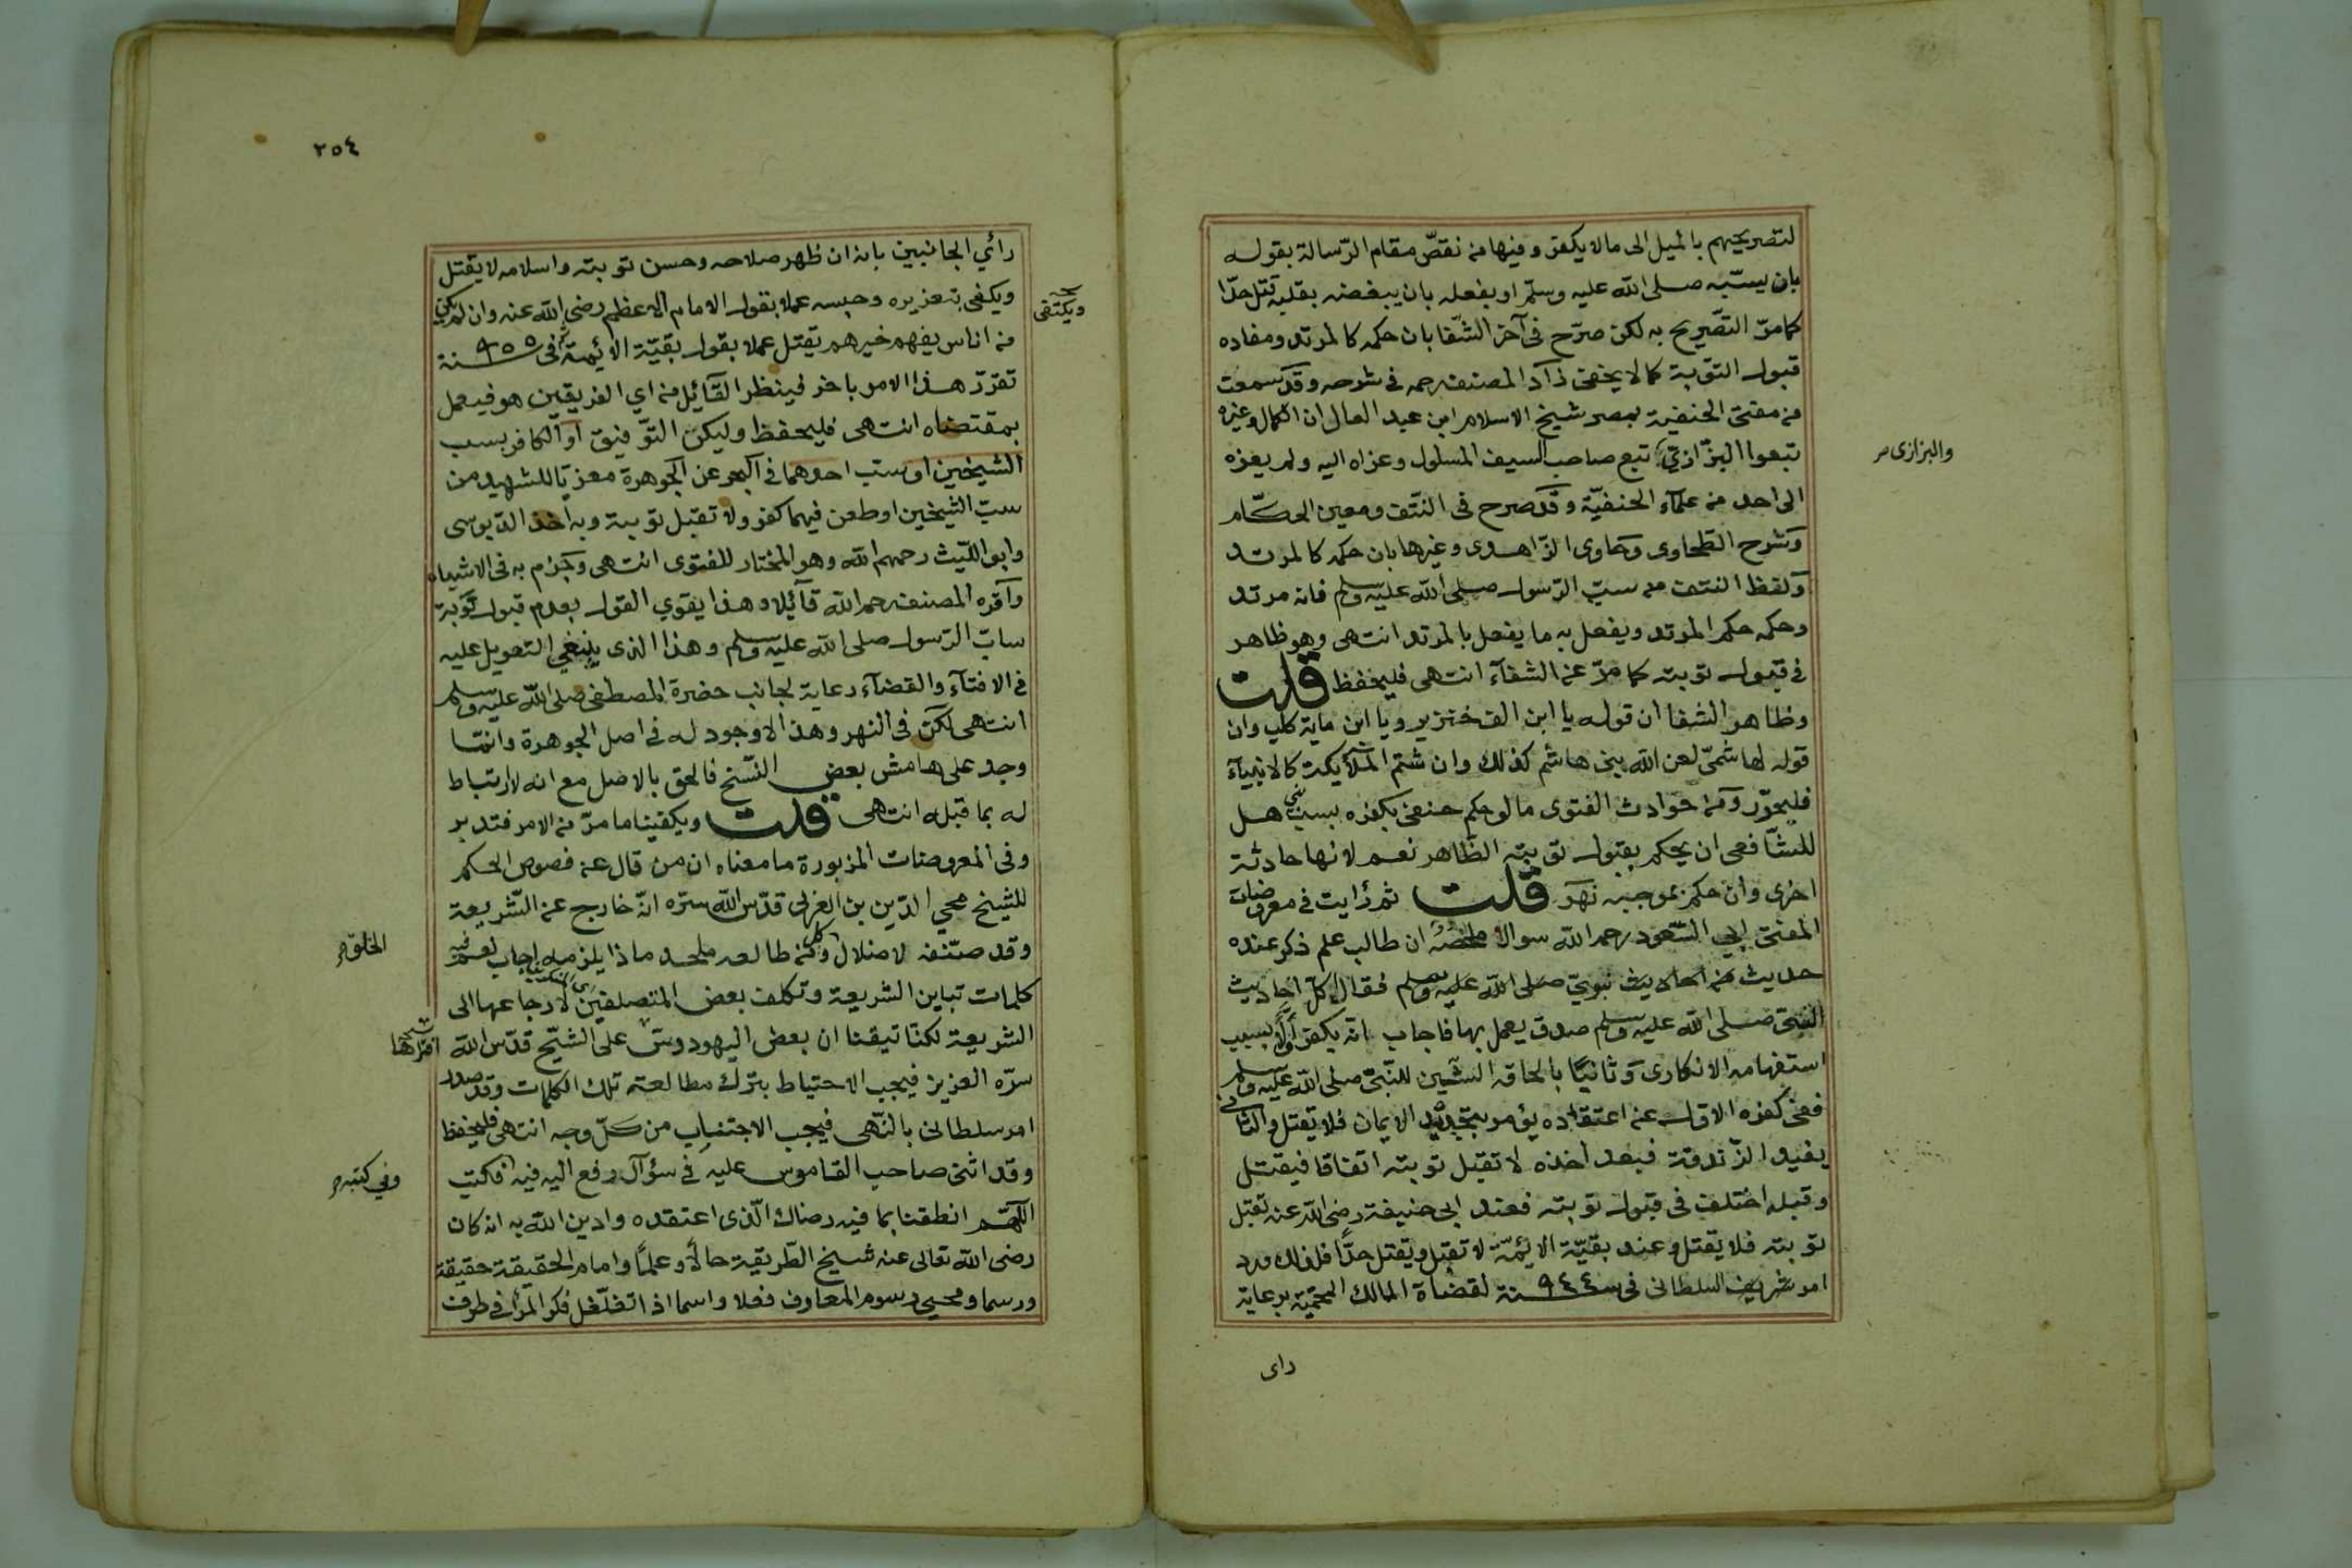 لتصريحهم بالميل الى مالا يكفر وفيها من نقصّ مقام الرّسالة بقوله
بان يسبّه صلى الله عليه وسلّم او بفعله بان يبغضه بقلبه قتل حدّا
كمامرّ التصّريح به لكن صرّح فى آخر الشّفا بان حكمه كالمرتد ومفاده
قبول التوّبة كما لا يخفى زآد المصنف رحمه فى شرحه وقد سمعت
من مفتى الحنفية بمصر شيخ الاسلام ابن عبد العال ان الكمال وغيره
تبعوا البزّازيّ تبع صاحب السيف المسلول وعزاه اليه ولم يعزه
والبزازى
الى احد من علمآء الحنفيّة وقد صرح فى النتف ومعين الحكّام
وشرح الطّحاوى وحاوى الزّاهدى وغيرها بان حكمه كالمرتد
ولفظ النتف من سبّ الرّسول صلى الله عليه وسلم فانه مرتد
وحكمه حكم المرتد ويفعل به ما يفعل بالمرتد انتهى وهو ظاهر
فى قبول توبته كما مرّ عن الشفآء انتهى فليحفظ قلت
وظاهر الشفا ان قوله يا ابن الف خنزير ويا ابن مايه كلب وان
قوله لهاشمىّ لعن الله بنى هاشم كذلك وان شتم الملأيكة كالانبيآء
فليحرّر ومن حوادث الفتوى مالو حكم حنفى بكفره بسب نبى هل
للشّافعى ان يحكم بقبول توبته الظّاهر نعم لانها حادثة
اخرى وان حكم بموجبه نهر قلت ثم رأيت فى معروضات
المفتى ابى السّعود رحمه الله سوالا ملخصّه ان طالب علم ذكر عنده
حديث من احاديث نبويّ صلى الله عليه وسلم فقال كلّ احاديث
النبىّ صلى الله عليه وسلم صدق يعمل بها فاجاب انه يكفر اوّلا بسبب
استفهامه الانكارى وثانيًا بالحاقه الشّين للنّبىّ صلى الله عليه وسلم
ففى كفره الاوّل عن اعتقاده يؤمر بتجديد الايمان فلا يقتل والثانى
يفيد الزّندقة فبعد اخذه لا تقبل توبته اتفاقا فيقتل
وقبله اختلف فى قبول توبته فعند ابى حنيفة رضى الله عنه تقبل
توبته فلا يقتل وعند بقيّة الائمّة لا تقبل ويقتل حدّا فلذلك ورد
امر شريف السلطانى فى سنة ٩٤٤ لقضاة الممالك المحميّة برعاية
راى
٢٥٤
رأئي الجانبين بانه ان ظهر صلاحه وحسن توبته واسلامه لا يقتل
ويكفى بتعزيره وحبسه عملا بقول الامام الاعظم رضى الله عنه وان لم يكن
ويكتفى
من اناس يفهم خيرهم يقتل عملا بقول بقيّة الائمة ثم فى سنة ٩٥٥
تقرّر هذا الامر باخر فينظر القآئل من اي الفريقين هو فيعمل
بمقتضاه انتهى فليحفظ وليكن التوّفيق او الكافر بسب
الشيخين او سبّ احدهما فى البحر عن الجوهرة معزيّا للشهيد من
سبّ الشيخين او طعن فيهما كفر ولا تقبل توبته وبه اخذ الدّبوسى
وابو اللّيث رحمهم الله وهو المختار للفتوى انتهى وجزم به فى الاشباه
واقره المصنف رحمه الله قآئلا وهذا يقوي القول بعدم قبول توبة
سابّ الرّسول صلى الله عليه وسلم وهذا الذى ينبغي التعويل عليه
فى الافتآء والقضآء رعاية لجانب حضرة المصطفى صلى الله عليه وسلم
انتهى لكن فى النهر وهذا لاوجود له فى اصل الجوهرة وانما
وجد على هامش بعض النسّخ فالحق بالاصل مع انه لا ارتباط
له بما قبله انتهى قلت ويكفينا ما مرّ من الامر فتدبر
وفى المعروضات المزبورة ما معناه ان من قال عن فصوص الحكم
للشّيخ محي الدّين بن العربى قدّس الله سرّه انّه خارج عن الشّريعة
وقد صنّفه لاضلال ومن طالعه ملحد ماذا يلزمه اجاب نعم فيه
الخلق
كلمات تباين الشريعة وتكلف بعض المتصلفين لارجاعها الى
الشريعة لكنّا تيقنا ان بعض اليهود وسّ على الشّيخ قدّس الله
افتراها
سرّه العزيز فيجب الاحتياط بترك مطالعته تلك الكلمات وقد صدر
امر سلطانى بالنّهى فيجب الاجتناب من كلّ وجه انتهى فليحفظ
وقد اثنى صاحب القاموس عليه فى سؤآل رفع اليه فيه فكتب
وفى كتبه
اللّهمّ انطقنا بما فيه رضاك الّذى اعتقده وادين الله به انه كان
رضى الله تعالى عنه شيخ الطّريقية حالًا وعلمًا وامام الحقيقة حقيقة
ورسما ومحيى رسوم المعاوف فعلا واسما اذا تغلّغل فكر المرٔ فى طرف